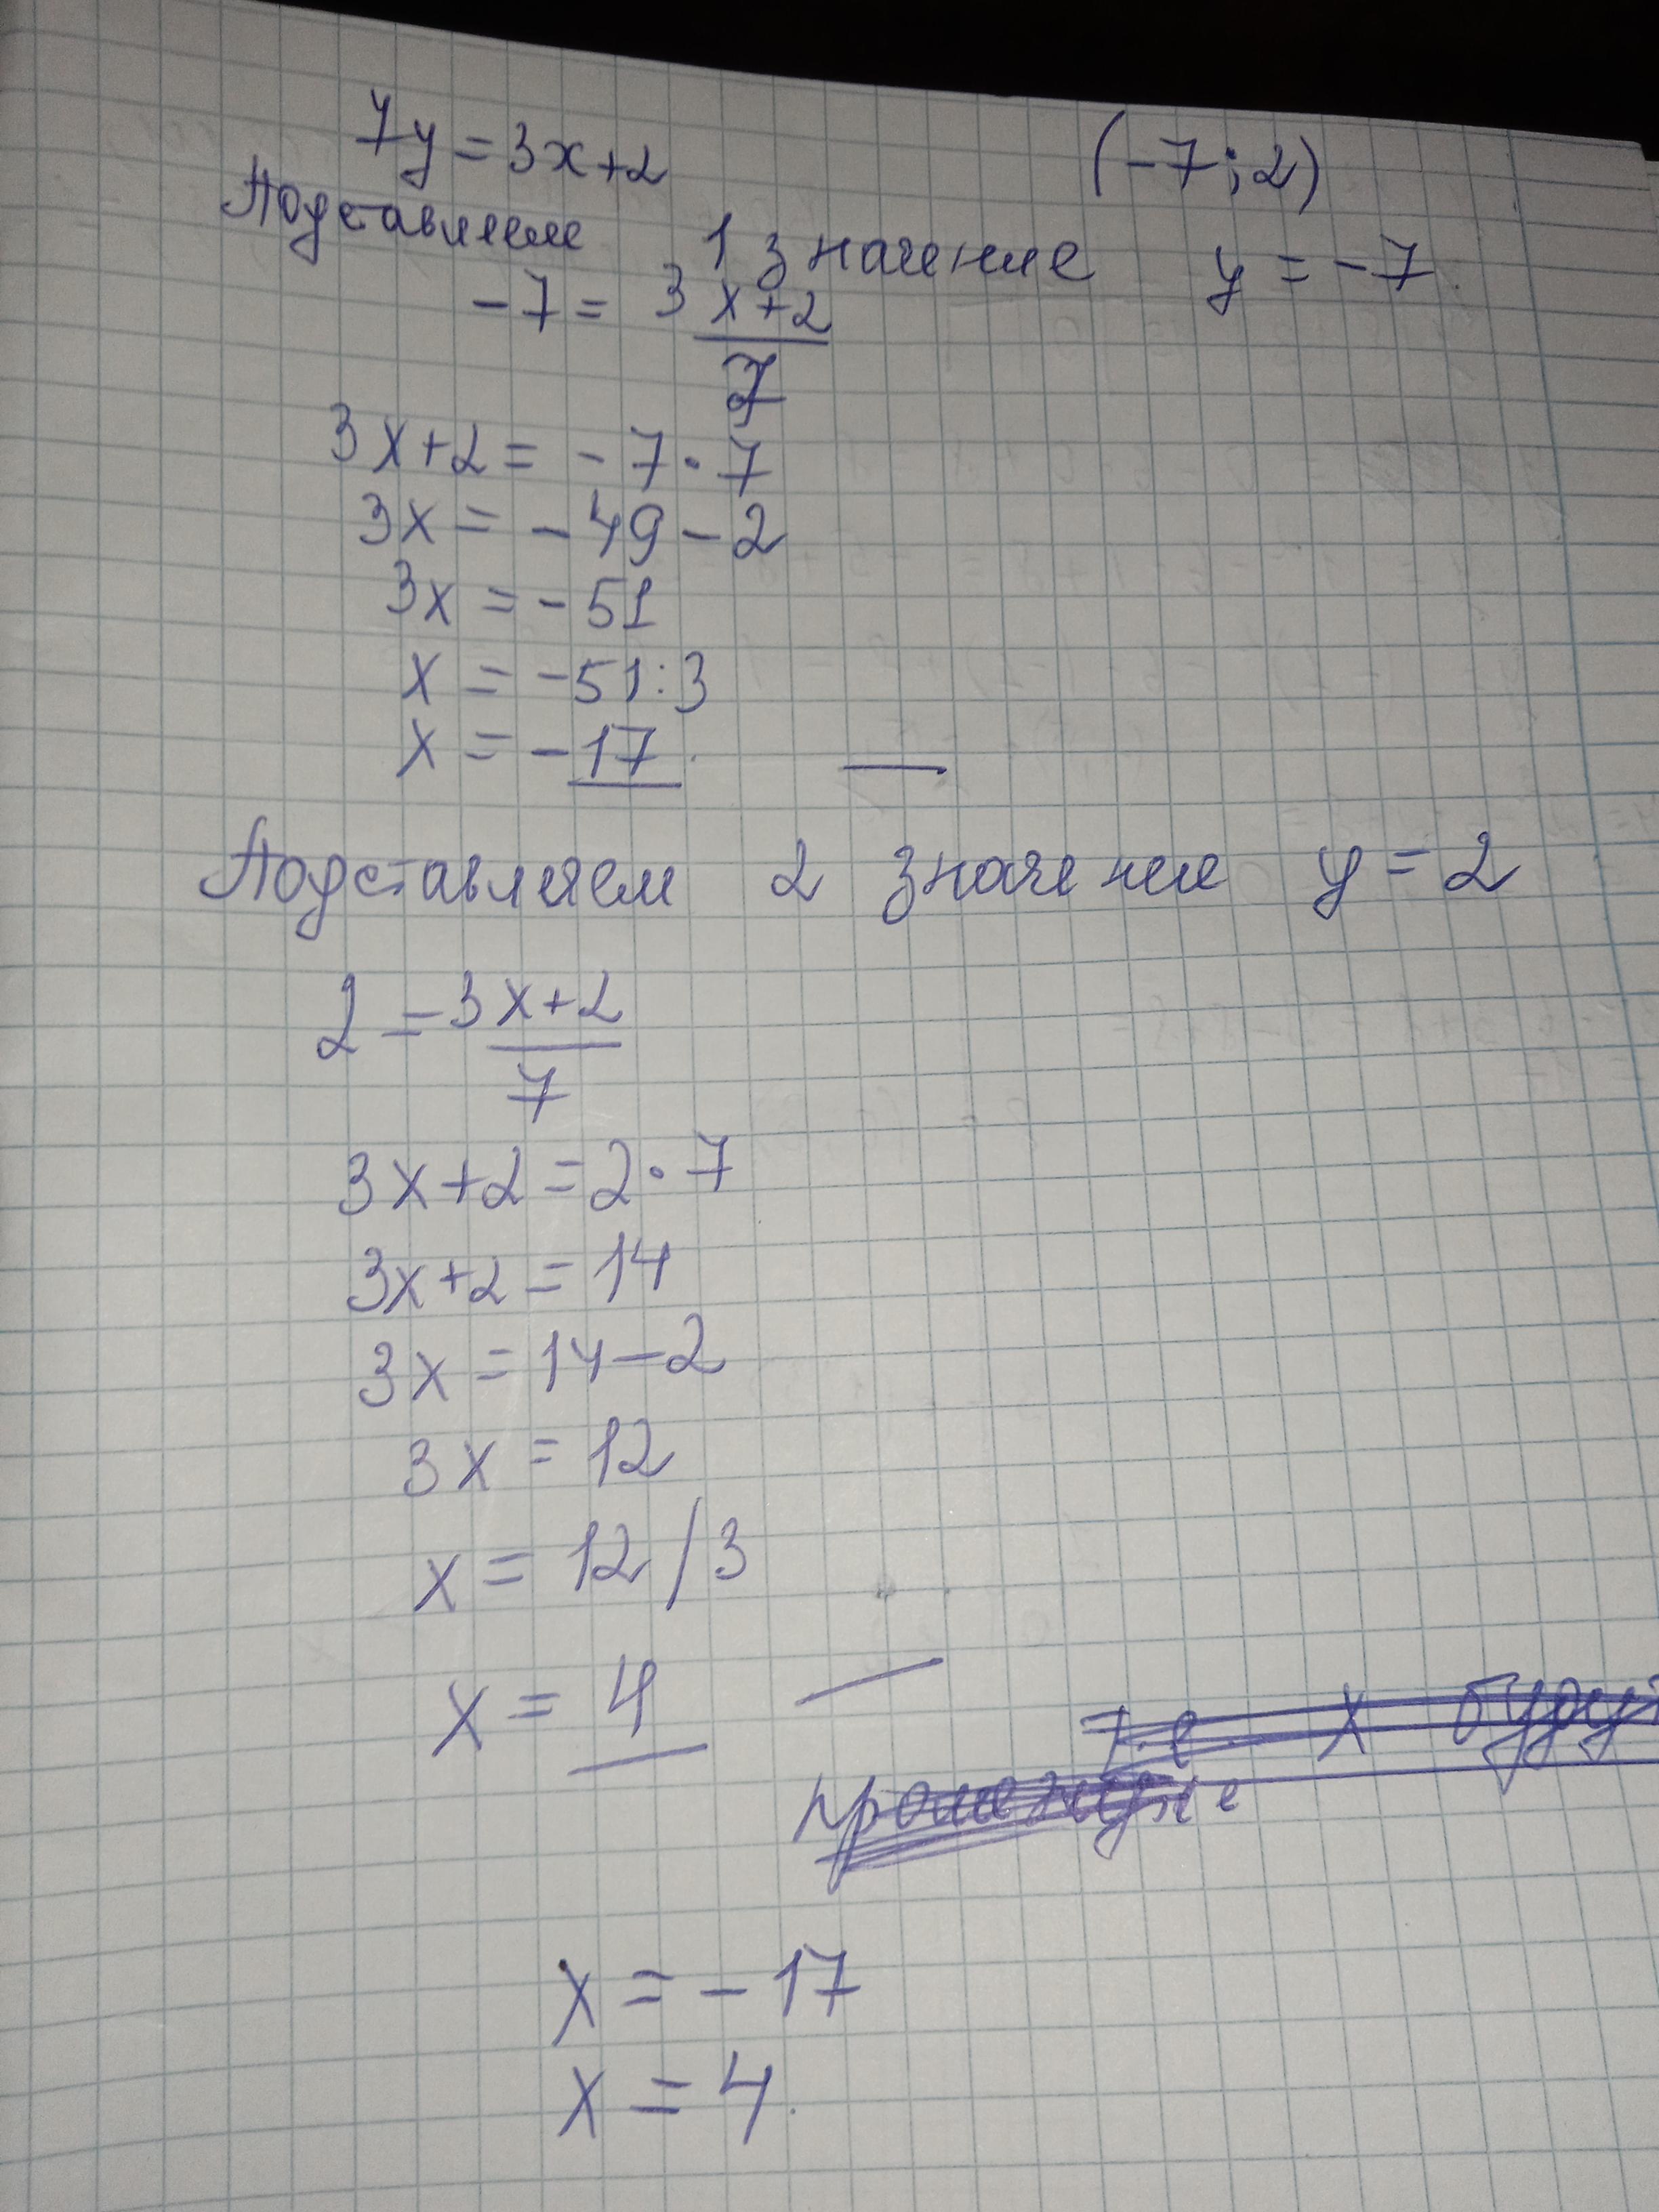 7y = 3x + 2 (-7; 2)
Подставляем 1 значение y = -7
-7 = 3x + 2
7
3x + 2 = -7 · 7
3x = -49 - 2
3x = -51
x = -51 : 3
x = -17
Подставляем 2 значение y = 2
2 = 3x + 2
7
3x + 2 = 2 · 7
3x + 2 = 14
3x = 14 - 2
3x = 12
x = 12 / 3
x = 4
т.е. x будут
x = -17
x = 4